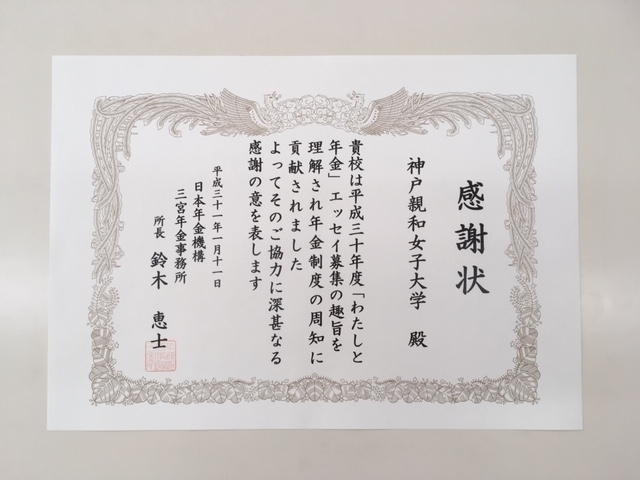 感謝状
神戸親和女子大学 殿
貴校は平成三十年度「わたしと
年金」エッセイ募集の趣旨を
理解され年金制度の周知に
貢献されました
よってそのご協力に深甚なる
感謝の意を表します
平成三十一年一月十一日
日本年金機構
三宮年金事務所
所長 鈴木 恵士